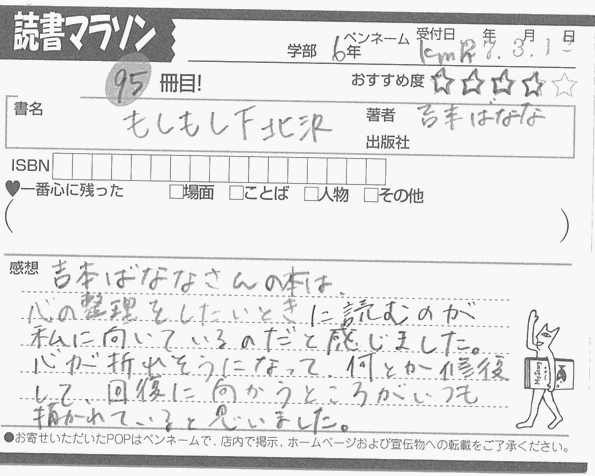 読書マラソン
学部 6年 ペンネーム kmR 受付日 年 月 日
7.3.1
95 冊目!
おすすめ度 ☆☆☆☆☆
書名 もしもし下北沢 著者 吉本ばなな
出版社
ISBN
♥一番心に残った □場面 □ことば □人物 □その他
( )
感想 吉本ばななさんの本は、
心の整理をしたいときに読むのが
私に向いているのだと感じました。
心が折れそうになって、何とか修復
して、回復に向かうところがいつも
描かれていると思いました。
●お寄せいただいたPOPはペンネームで、店内で掲示、ホームページおよび宣伝物への転載をご了承ください。